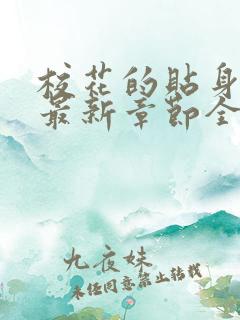 校花的贴身
最新章节全
九夜妹
未经同意禁止转载